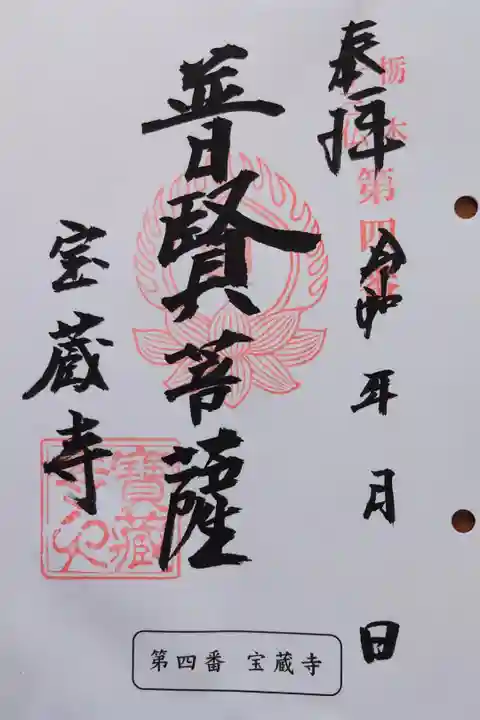 奉拝
栃木
第四番
令和 年 月 日
普賢菩薩
宝蔵寺
寶蔵
第四番 宝蔵寺